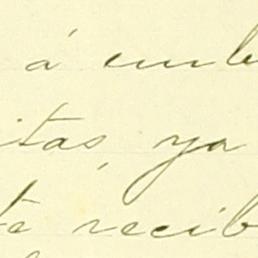 á emb
itas, ya
te recib